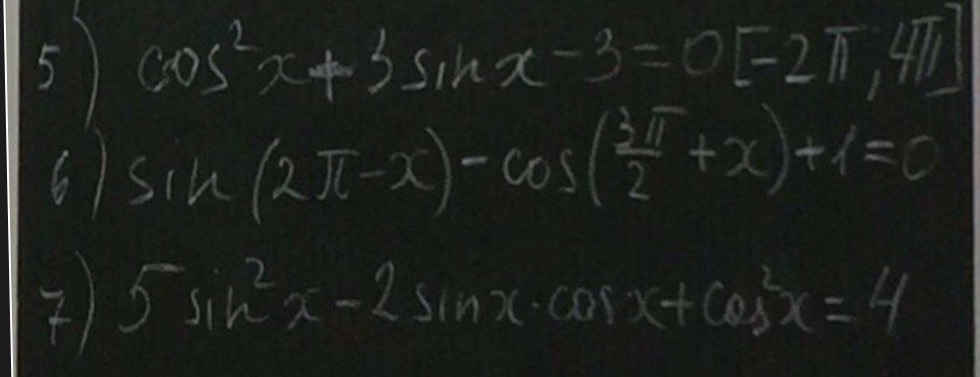 5) cos²x + 3 sin x - 3 = 0 [-2π, 4π]
6) sin (2π - x) - cos (3π/2 + x) + 1 = 0
7) 5 sin²x - 2 sin x · cos x + cos²x = 4